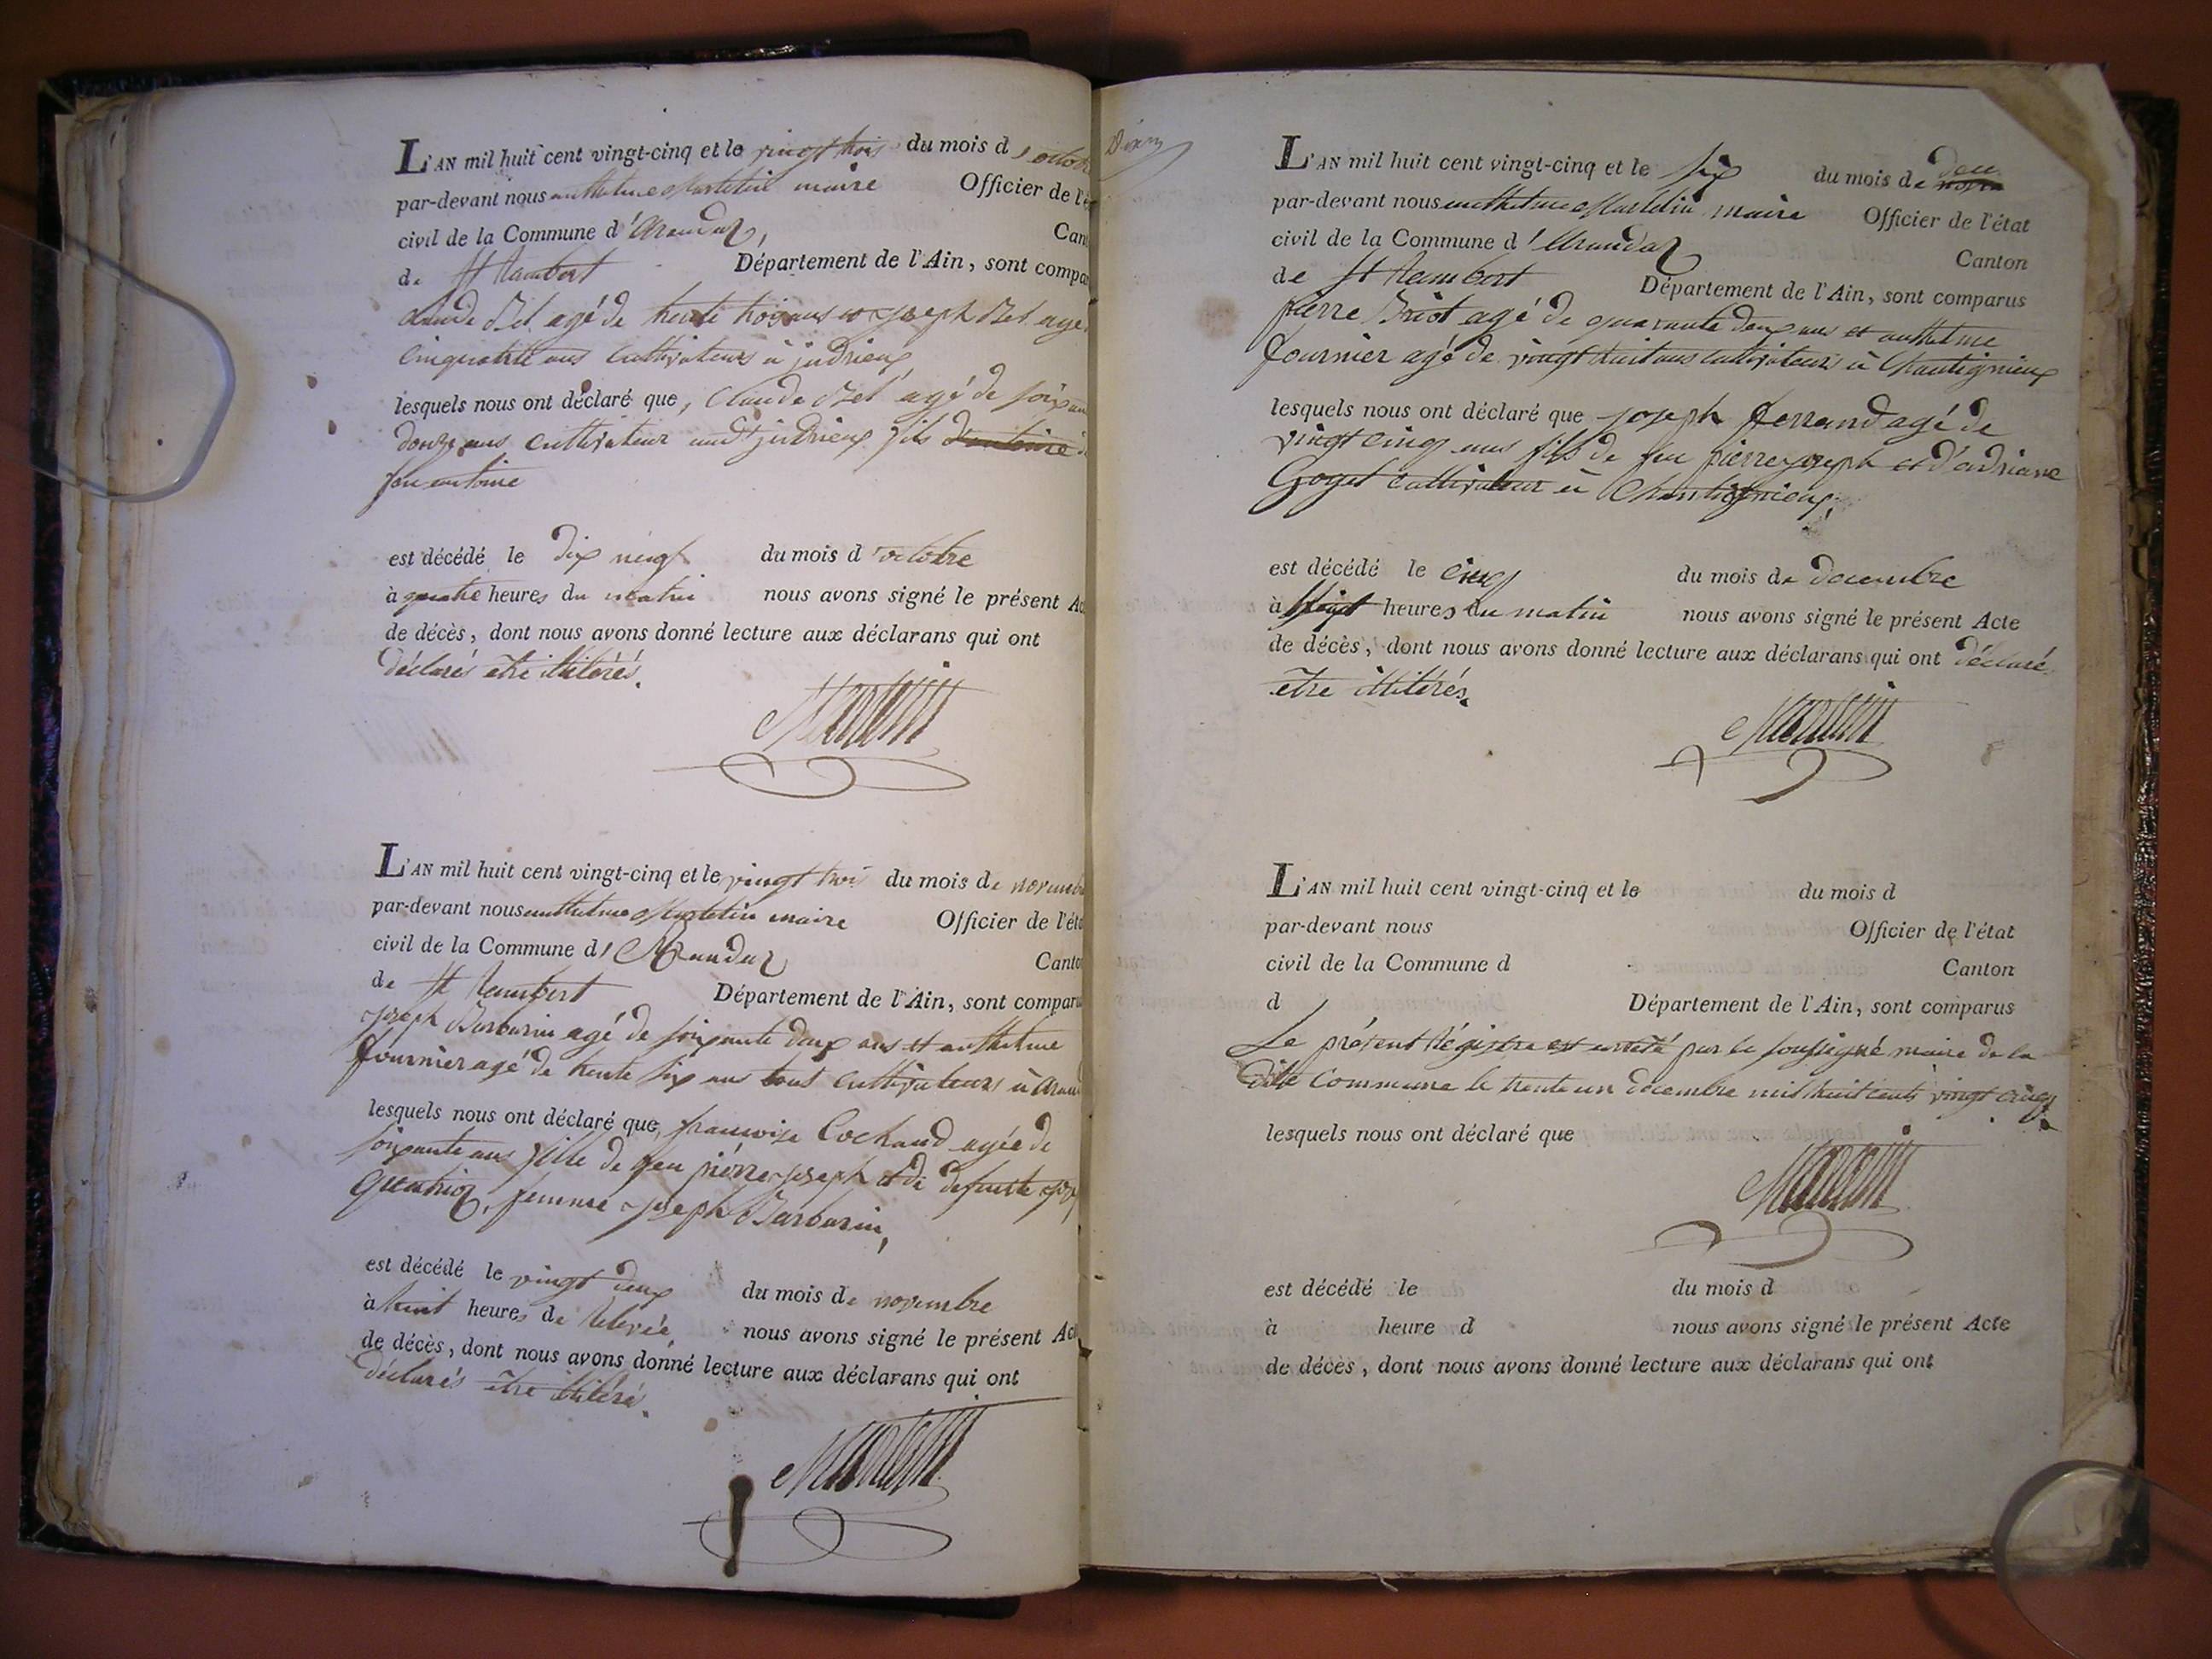 L'AN mil huit cent vingt-cinq et le vingt trois du mois d'octob
par-devant nous anthelme Martelin maire Officier de l'é
civil de la Commune d'Arandaz, Can
de St Rambert Département de l'Ain, sont compar
Claude Bel agé de trente trois ans et joseph Bel agé
Cinquante ans Cultivateurs à judrieux
lesquels nous ont déclaré que, Claude Bel agé de soixan
douze ans cultivateur aud judrieux fils d'antoine
feu antoine
est décédé le dix neuf du mois d'octobre
à quatre heures du matin nous avons signé le présent Ac
de décès, dont nous avons donné lecture aux déclarans qui ont
déclarés etre illitérés.
Martelin
L'AN mil huit cent vingt-cinq et le vingt trois du mois de novemb
par-devant nous anthelme Martelin maire Officier de l'éta
civil de la Commune d'Arandaz Canto
de St Rambert Département de l'Ain, sont comparu
joseph Barbarin agé de soixante deux ans et anthelme
fournier agé de trente six ans tous cultivateurs à aran
lesquels nous ont déclaré que, francoise Cochand agée de
soixante ans fille de feu pierre-joseph et de defunte
femme joseph Barbarin,
est décédé le vingt deux du mois de novembre
à huit heures de relevée, nous avons signé le présent Act
de décès, dont nous avons donné lecture aux déclarans qui ont
déclarés etre illitéré.
Martelin
L'AN mil huit cent vingt-cinq et le six du mois de novem dece
par-devant nous anthelme Martelin maire Officier de l'état
civil de la Commune d'Arandaz Canton
de St Rambert Département de l'Ain, sont comparus
pierre Briot agé de quarante deux ans et anthelme
fournier agé de vingt huit ans cultivateurs à Chantignieux
lesquels nous ont déclaré que joseph ferrand agé de
vingt cinq ans fils de feu pierre joseph et d'adriane
Goyet cultivateur à Chantignieux.
est décédé le cinq du mois de decembre
à heures du matin nous avons signé le présent Acte
de décès, dont nous avons donné lecture aux déclarans qui ont déclaré
etre illitérés.
Martelin
L'AN mil huit cent vingt-cinq et le du mois d
par-devant nous Officier de l'état
civil de la Commune d Canton
d Département de l'Ain, sont comparus
Le présent Régistre est arreté par le soussigné maire de la
dite Commune le trente un decembre mil huit cents vingt cinq.
lesquels nous ont déclaré que
Martelin
est décédé le du mois d
à heure d nous avons signé le présent Acte
de décès, dont nous avons donné lecture aux déclarans qui ont